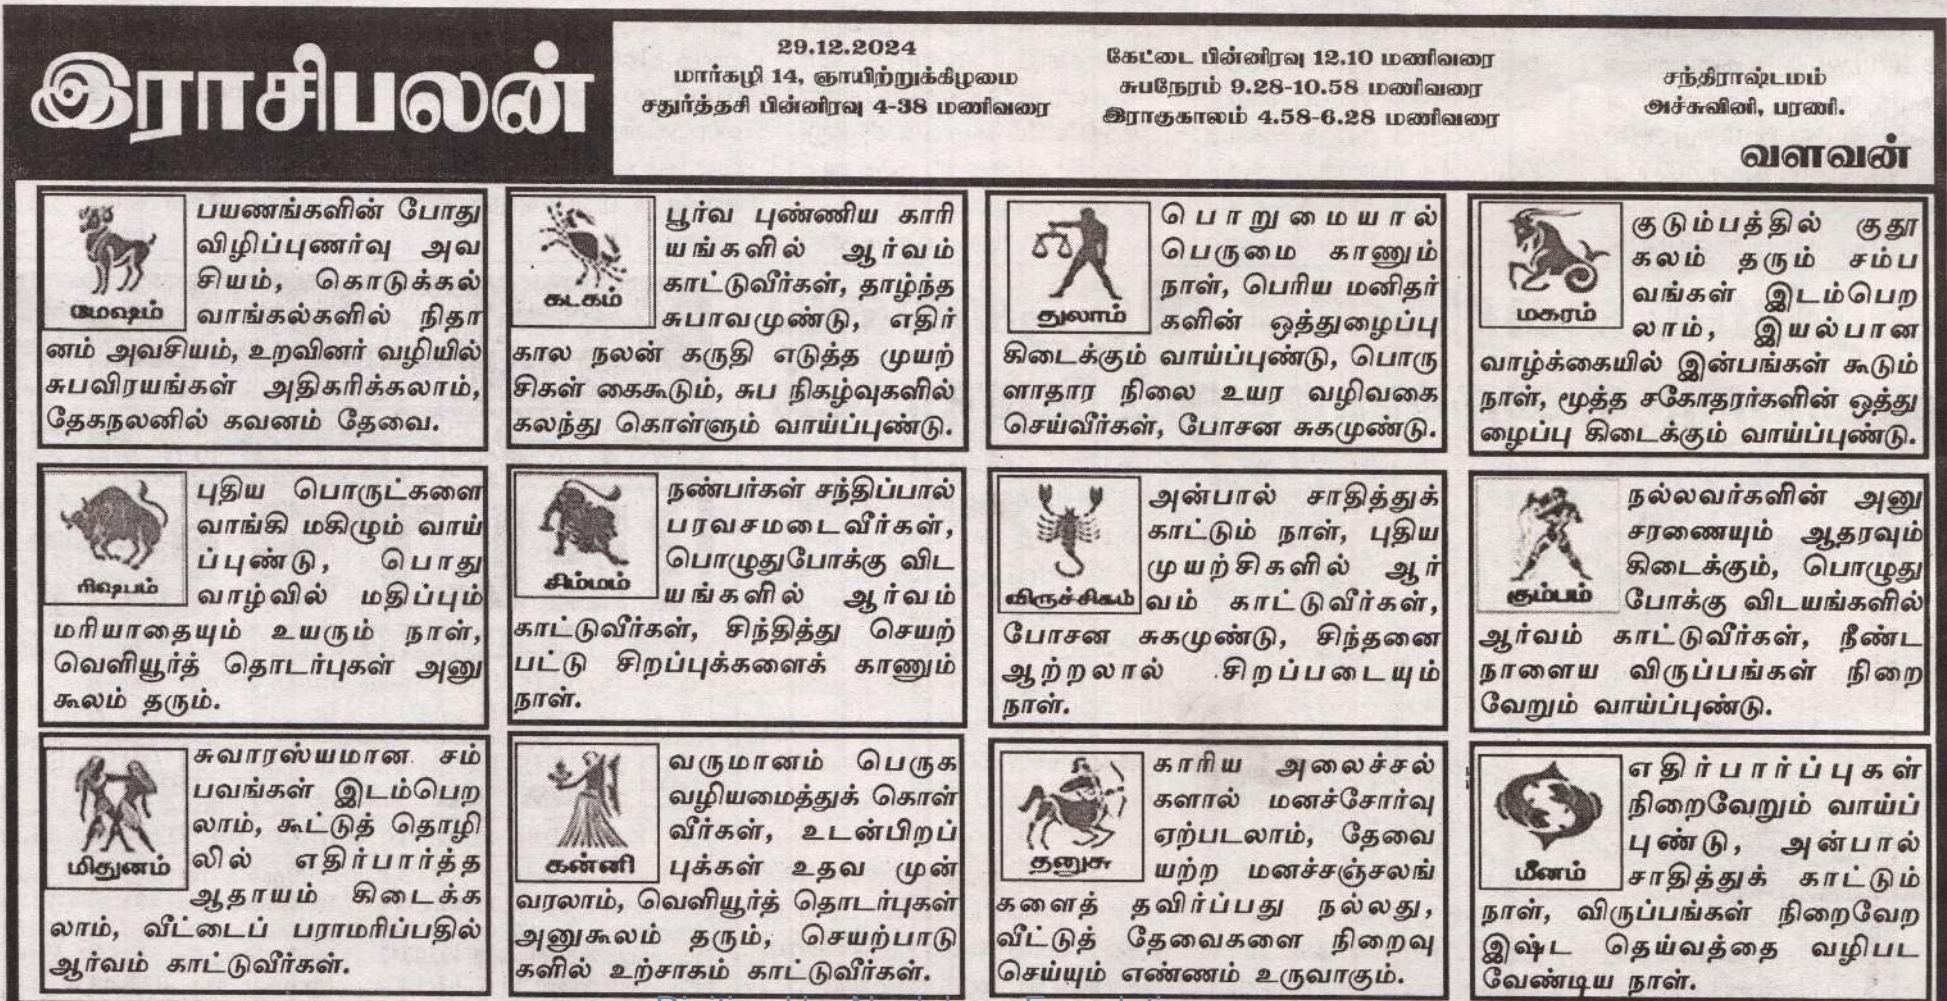 இராசிபலன்
29.12.2024
மார்கழி 14, ஞாயிற்றுக்கிழமை
சதுர்த்தசி பின்னிரவு 4-38 மணிவரை
கேட்டை பின்னிரவு 12.10 மணிவரை
சுபநேரம் 9.28-10.58 மணிவரை
இராகுகாலம் 4.58-6.28 மணிவரை
சந்திராஷ்டமம்
அச்சுவினி, பரணி.
வளவன்
மேஷம்
பயணங்களின் போது
விழிப்புணர்வு அவ
சியம், கொடுக்கல்
வாங்கல்களில் நிதா
னம் அவசியம், உறவினர் வழியில்
சுபவிரயங்கள் அதிகரிக்கலாம்,
தேகநலனில் கவனம் தேவை.
ரிஷபம்
புதிய பொருட்களை
வாங்கி மகிழும் வாய்
ப்புண்டு, பொது
வாழ்வில் மதிப்பும்
மரியாதையும் உயரும் நாள்,
வெளியூர்த் தொடர்புகள் அனு
கூலம் தரும்.
மிதுனம்
சுவாரஸ்யமான சம்
பவங்கள் இடம்பெற
லாம், கூட்டுத் தொழி
லில் எதிர்பார்த்த
ஆதாயம் கிடைக்க
லாம், வீட்டைப் பராமரிப்பதில்
ஆர்வம் காட்டுவீர்கள்.
கடகம்
பூர்வ புண்ணிய காரி
யங்களில் ஆர்வம்
காட்டுவீர்கள், தாழ்ந்த
சுபாவமுண்டு, எதிர்
கால நலன் கருதி எடுத்த முயற்
சிகள் கைகூடும், சுப நிகழ்வுகளில்
கலந்து கொள்ளும் வாய்ப்புண்டு.
சிம்மம்
நண்பர்கள் சந்திப்பால்
பரவசமடைவீர்கள்,
பொழுதுபோக்கு விட
யங்களில் ஆர்வம்
காட்டுவீர்கள், சிந்தித்து செயற்
பட்டு சிறப்புக்களைக் காணும்
நாள்.
கன்னி
வருமானம் பெருக
வழியமைத்துக் கொள்
வீர்கள், உடன்பிறப்
புக்கள் உதவ முன்
வரலாம், வெளியூர்த் தொடர்புகள்
அனுகூலம் தரும், செயற்பாடு
களில் உற்சாகம் காட்டுவீர்கள்.
துலாம்
பொறுமையால்
பெருமை காணும்
நாள், பெரிய மனிதர்
களின் ஒத்துழைப்பு
கிடைக்கும் வாய்ப்புண்டு, பொரு
ளாதார நிலை உயர வழிவகை
செய்வீர்கள், போசன சுகமுண்டு.
விருச்சிகம்
அன்பால் சாதித்துக்
காட்டும் நாள், புதிய
முயற்சிகளில் ஆர்
வம் காட்டுவீர்கள்,
போசன சுகமுண்டு, சிந்தனை
ஆற்றலால் சிறப்படையும்
நாள்.
தனுசு
காரிய அலைச்சல்
களால் மனச்சோர்வு
ஏற்படலாம், தேவை
யற்ற மனச்சஞ்சலங்
களைத் தவிர்ப்பது நல்லது,
வீட்டுத் தேவைகளை நிறைவு
செய்யும் எண்ணம் உருவாகும்.
மகரம்
குடும்பத்தில் குதூ
கலம் தரும் சம்ப
வங்கள் இடம்பெற
லாம், இயல்பான
வாழ்க்கையில் இன்பங்கள் கூடும்
நாள், மூத்த சகோதரர்களின் ஒத்து
ழைப்பு கிடைக்கும் வாய்ப்புண்டு.
கும்பம்
நல்லவர்களின் அனு
சரணையும் ஆதரவும்
கிடைக்கும், பொழுது
போக்கு விடயங்களில்
ஆர்வம் காட்டுவீர்கள், நீண்ட
நாளைய விருப்பங்கள் நிறை
வேறும் வாய்ப்புண்டு.
மீனம்
எதிர்பார்ப்புகள்
நிறைவேறும் வாய்ப்
புண்டு, அன்பால்
சாதித்துக் காட்டும்
நாள், விருப்பங்கள் நிறைவேற
இஷ்ட தெய்வத்தை வழிபட
வேண்டிய நாள்.